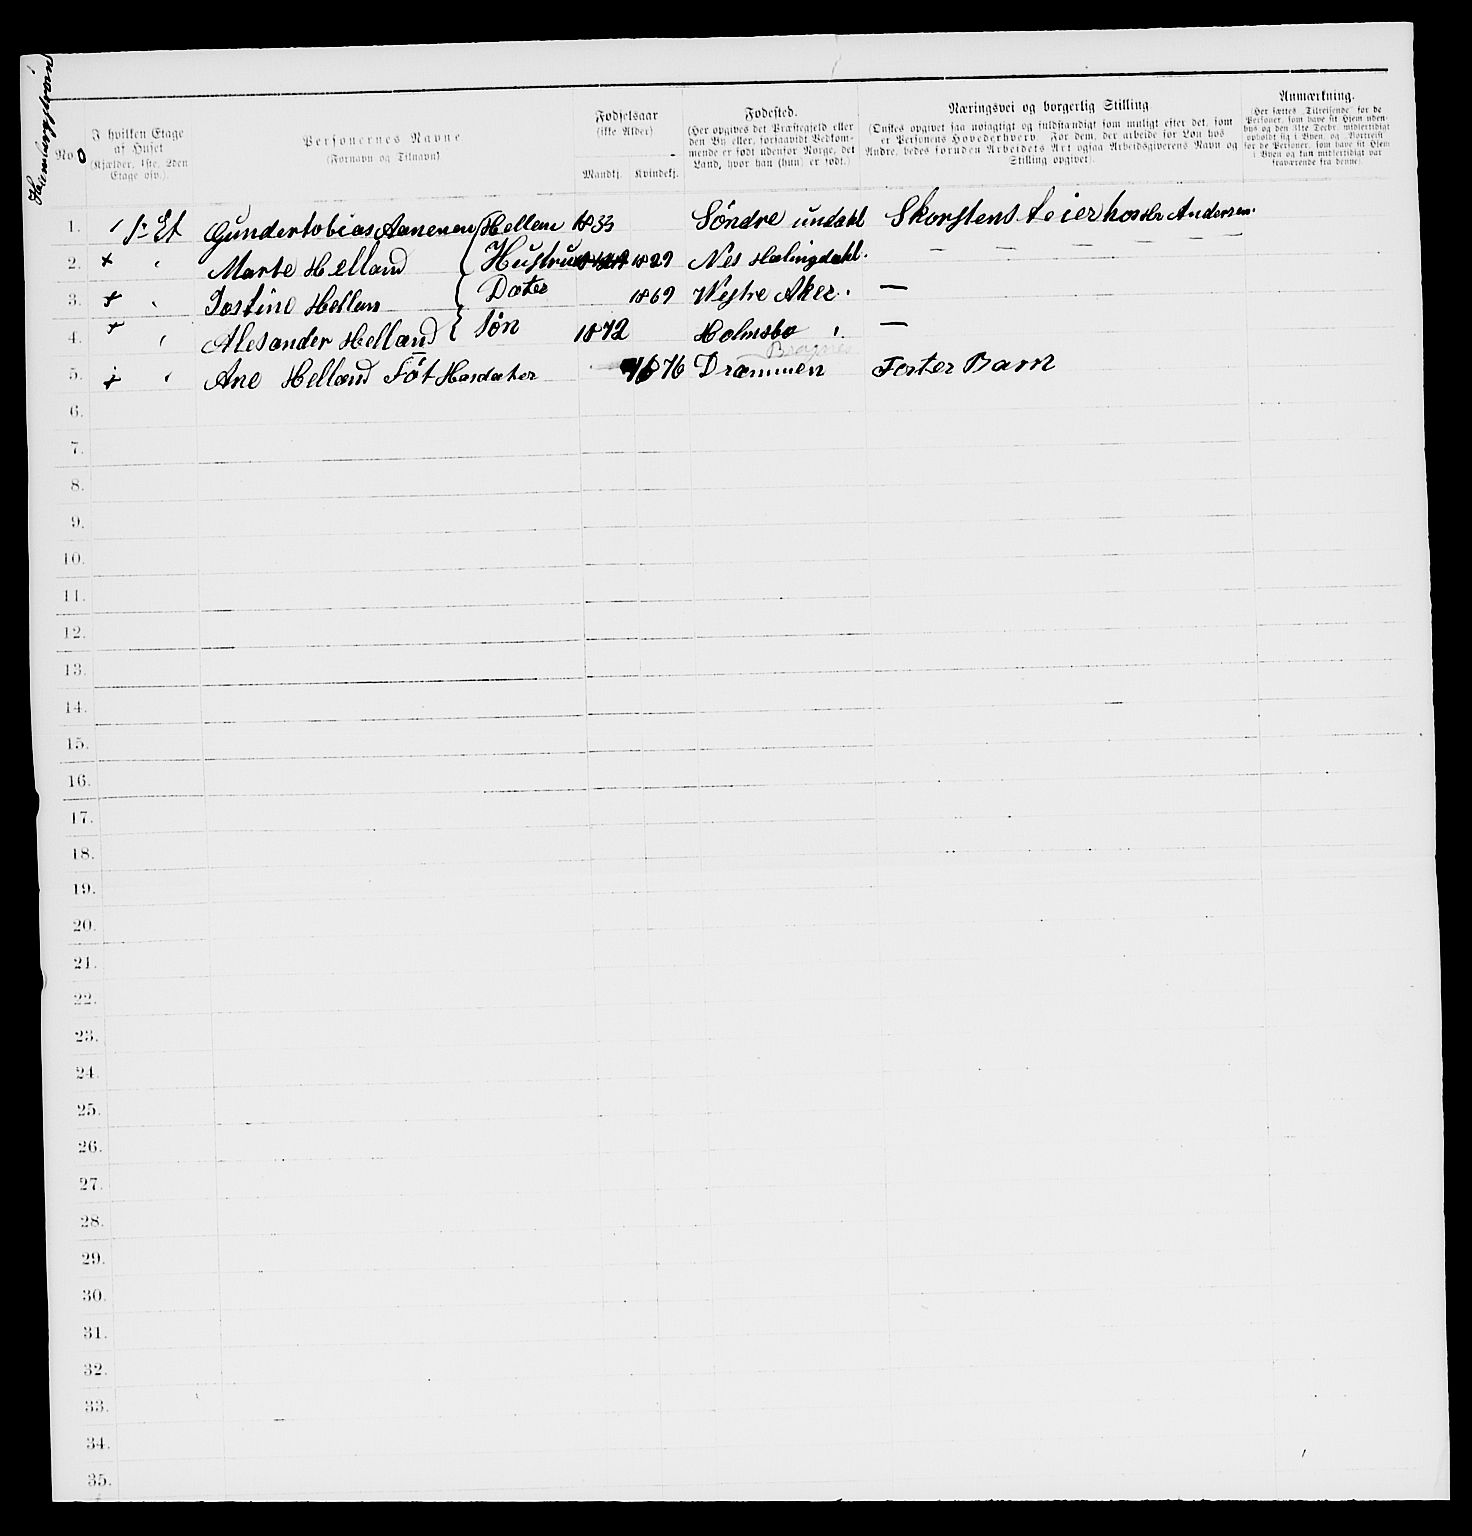 No.
I hvilken Etage
af Huset
(Kjælder, 1ste, 2den
Etage osv.).
Personernes Navne
(Fornavn og Tilnavn)
Fødselsaar
(ikke Alder)
Mandkj.
Kvindekj.
Fødested.
(Her opgives det Præstegjeld eller
den By eller, forsaavidt Vedkom-
mende er født udenfor Norge, det
Land, hvor han (hun) er født.)
Næringsvei og borgerlig Stilling
(Ønskes opgivet saa nøiagtigt og fuldstændigt som muligt efter det, som
er Personens Hovederhverv. For dem, der arbeide for Løn hos
Andre, bedes foruden Arbeidets Art ogsaa Arbeidsgiverens Navn og
Stilling opgivet).
Anmærkning.
(Her sættes „Tilreisende“ for de
Personer, som have sit Hjem uden-
bys og den 31te Decbr. midlertidigt
opholdt sig i Byen, og „Bortreist“
for de Personer, som have sit Hjem
i Byen og kun midlertidigt var
fraværende fra denne).
1. 1s Et Gundertobias Aanensen Hellan 1833 Söndre undahl Skorstens feier hos Hr Andersen.
2. + " Marte Helland { Hustru 1829 Nes Halingdahl. — — — — — —
3. + " Jostine Hellan { Dater 1869 Westre Aker. —
4. + " Alesander Helland { Søn 1872 Holmsbo " —
Bragnes
5. + " Ane Helland Föt Hasdatter 1876 Drammen Foster Barn
6.
7.
8.
9.
10.
11.
12.
13.
14.
15.
16.
17.
18.
19.
20.
21.
22.
23.
24.
25.
26.
27.
28.
29.
30.
31.
32.
33.
34.
35.